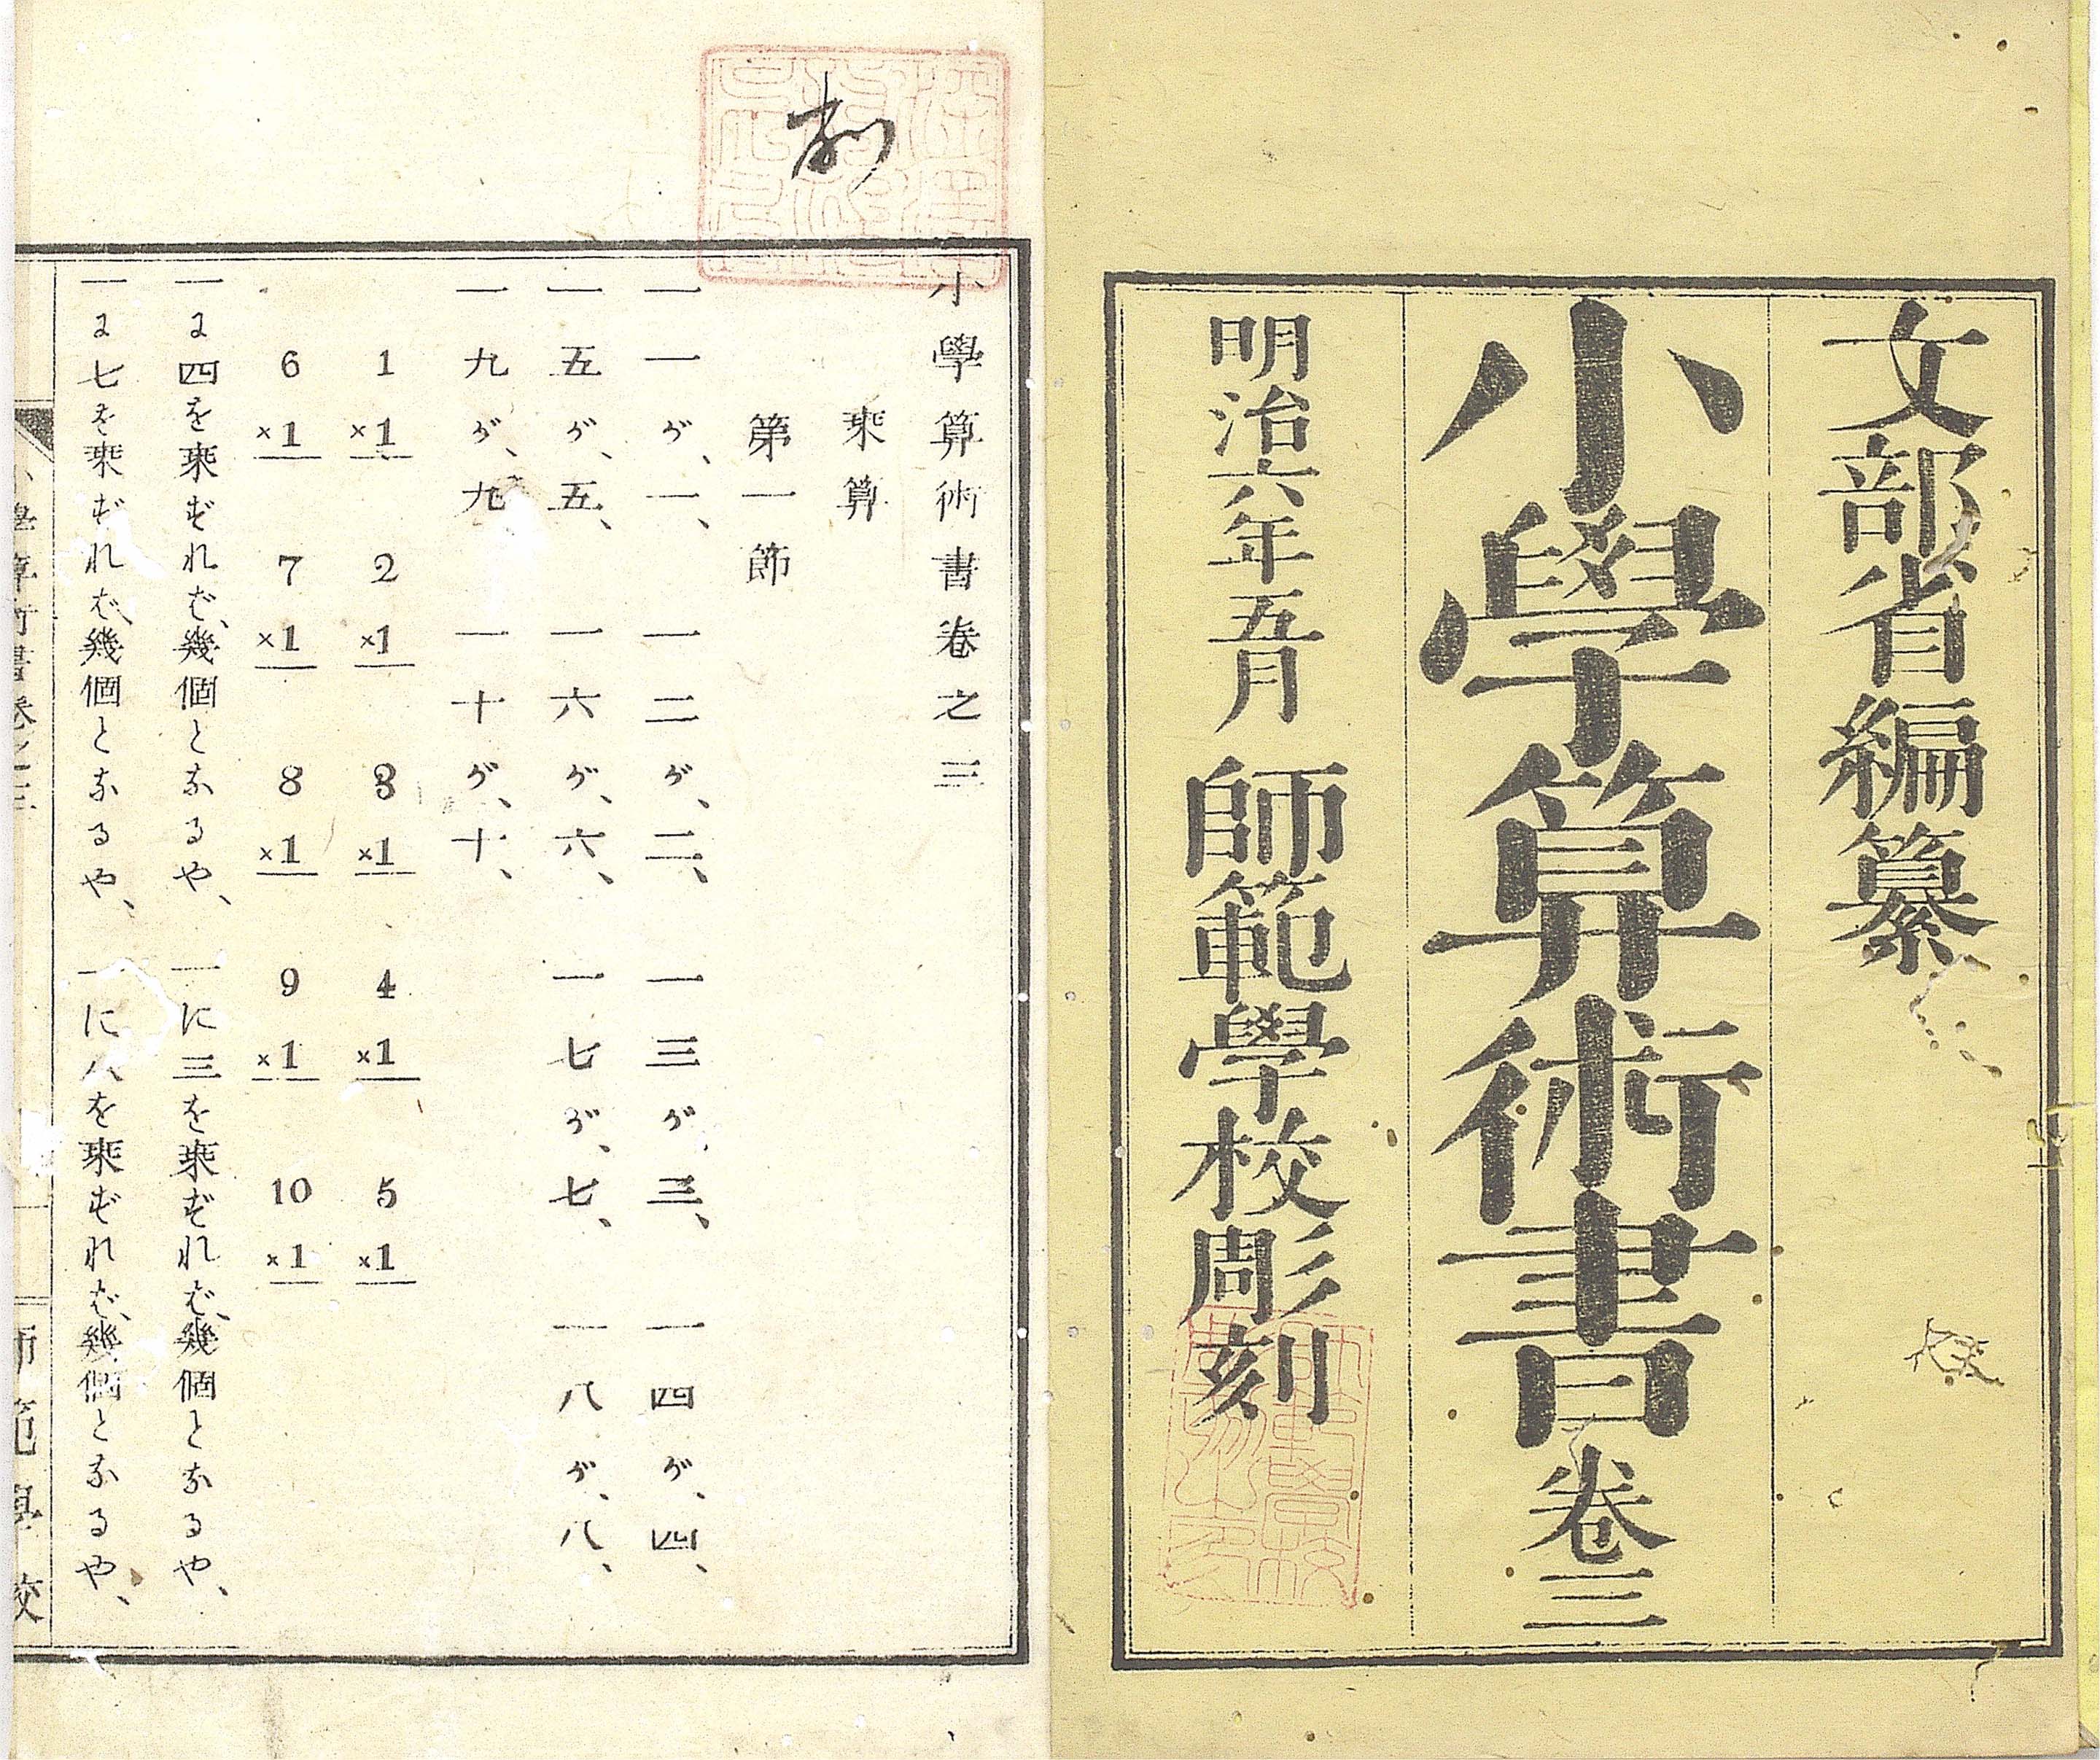 文部省編纂
小學算術書卷三
明治六年五月 師範學校彫刻
小學算術書卷之三
乘算
第一節
一一ガ、一、 一二ガ、二、 一三ガ、三、 一四ガ、四、
一五ガ、五、 一六ガ、六、 一七ガ、七、 一八ガ、八、
一九ガ、九 一十ガ、十、
1 ×1 2 ×1 3 ×1 4 ×1 5 ×1
6 ×1 7 ×1 8 ×1 9 ×1 10 ×1
一に四を乗ずれば、幾個となるや、 一に三を乗ずれば、幾個となるや、
一に七を乗ずれば、幾個となるや、 一に八を乗ずれば、幾個となるや、
小學算術書卷之三 一 師範學校